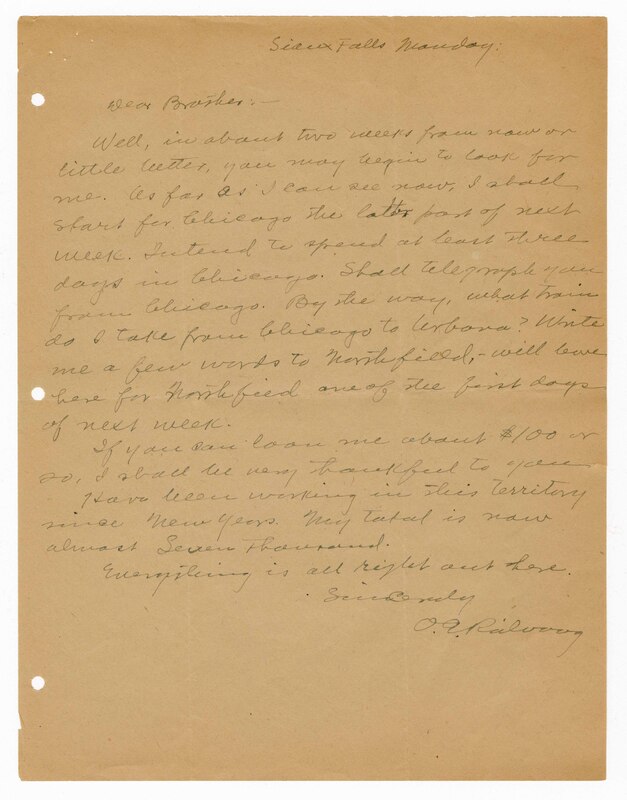 Sioux Falls Monday:
Dear Brother:—
Well, in about two weeks from now or
little better, you may begin to look for
me. As far as I can see now, I shall
start for Chicago the latter part of next
week. Intend to spend at least three
days in Chicago. Shall telegraph you
from Chicago. By the way, what train
do I take from Chicago to Urbana? Write
me a few words to Northfield,- will leave
here for Northfield one of the first days
of next week.
If you can loan me about $100 or
so, I shall be very thankful to you
Have been working in this territory
since New Years. My total is now
almost Seven Thousand.
Everything is all right out here.
Sincerely
O.E.